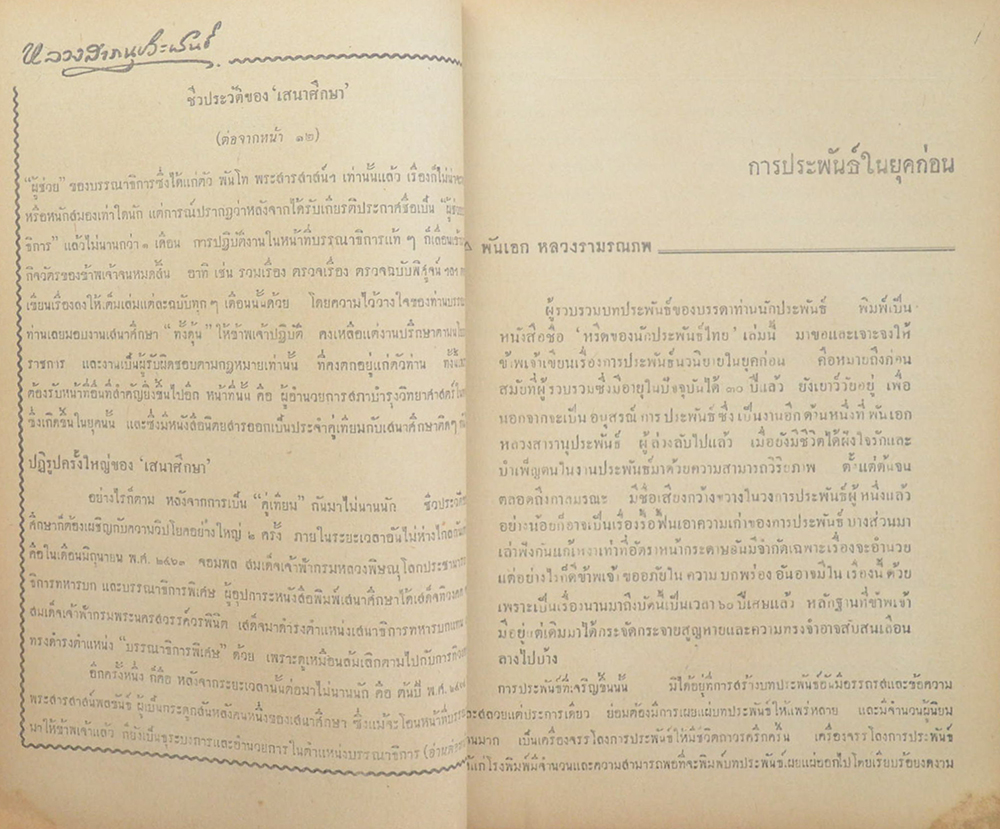 หลวงสารานุประพันธ์
ชีวประวัติของ ‘เสนาศึกษา’
(ต่อจากหน้า ๑๒)
“ผู้ช่วย” ของบรรณาธิการซึ่งได้แก่ตัว พันโท พระสารสาส์นฯ เท่านั้นแล้ว เรื่องก็ไม่น่าจะ
หรือหนักสมองเท่าใดนัก แต่การณ์ปรากฏว่าหลังจากได้รับเกียรติประกาศชื่อเป็น “ผู้ช่วย
ธิการ” แล้วไม่นานกว่า ๑ เดือน การปฏิบัติงานในหน้าที่บรรณาธิการแท้ ๆ ก็เลื่อนเข้า
กิจวัตรของข้าพเจ้าจนหมดสิ้น อาทิ เช่น รวมเรื่อง ตรวจเรื่อง ตรวจฉบับพิสูจน์ ฯลฯ
เขียนเรื่องลงให้เต็มเล่มแต่ละฉบับทุกๆ เดือนนั้นด้วย โดยความไว้วางใจของท่านบรรณ
ท่านเลยมอบงานเสนาศึกษา “ทั้งดุ้น” ให้ข้าพเจ้าปฏิบัติ คงเหลือแต่งานปรึกษาตาม
ราชการ และงานเป็นผู้รับผิดชอบตามกฎหมายเท่านั้น ที่คงตกอยู่แก่ตัวท่าน ทั้งนี้
ต้องรับหน้าที่อื่นที่สำคัญยิ่งขึ้นไปอีก หน้าที่นั้น คือ ผู้อำนวยการสภาบำรุงวิทยาศาสตร์
ซึ่งเกิดขึ้นในยุคนั้น และซึ่งมีหนังสือนิตยสารออกเป็นประจำคู่เทียมกับเสนาศึกษาคิดๆ
ปฏิรูปครั้งใหญ่ของ ‘เสนาศึกษา’
อย่างไรก็ตาม หลังจากการเป็น “คู่เทียม” กันมาไม่นานนัก ชีวประวัติ
ศึกษาก็ต้องเผชิญกับความวิปโยคอย่างใหญ่ ๒ ครั้ง ภายในระยะเวลาอันไม่ห่างไกลกัน
คือในเดือนมิถุนายน พ.ศ. ๒๔๖๓ จอมพล สมเด็จเจ้าฟ้ากรมหลวงพิษณุโลกประชานารถ
ธิการทหารบก และบรรณาธิการพิเศษ ผู้อุปการะหนังสือพิมพ์เสนาศึกษาได้เสด็จทิวงคต
สมเด็จเจ้าฟ้ากรมพระนครสวรรค์วรพินิต เสด็จมาดำรงตำแหน่งเสนาธิการทหารบกแทน
ทรงดำรงตำแหน่ง “บรรณาธิการพิเศษ” ด้วย เพราะดูเหมือนล้มเลิกตามไปกับการทิวงคต
อีกครั้งหนึ่ง ก็คือ หลังจากระยะเวลานั้นต่อมาไม่นานนัก คือ ต้นปี พ.ศ.
พระสารสาส์นพลขันธ์ ผู้เป็นกระดูกสันหลังคนหนึ่งของเสนาศึกษา ซึ่งแม้จะโอนหน้าที่บรรณ
มาให้ข้าพเจ้าแล้ว ก็ยังเป็นธุระบงการและอำนวยการ ในตำแหน่งบรรณาธิการ (อ่านต่อ
การประพันธ์ในยุคก่อน
พันเอก หลวงรามรณภพ
ผู้รวบรวมบทประพันธ์ของบรรดาท่านนักประพันธ์ พิมพ์เป็น
หนังสือชื่อ ‘หรีดของนักประพันธ์ไทย’ เล่มนี้ มาขอและเจาะจงให้
ข้าพเจ้าเขียนเรื่องการประพันธ์นวนิยายในยุคก่อน คือหมายถึงก่อน
สมัยที่ผู้รวบรวมซึ่งมีอายุในปัจจุบันได้ ๓๐ ปีแล้ว ยังเยาว์วัยอยู่ เพื่อ
นอกจากจะเป็น อนุสรณ์ การ ประพันธ์ ซึ่ง เป็นงานอีก ด้านหนึ่งที่ พันเอก
หลวงสารานุประพันธ์ ผู้ ล่วงลับไปแล้ว เมื่อยังมีชีวิตได้ฝังใจรักและ
บำเพ็ญตนในงานประพันธ์มาด้วยความสามารถวิริยภาพ ตั้งแต่ต้นจน
ตลอดถึงกาลมรณะ มีชื่อเสียงกว้างขวางในวงการประพันธ์ผู้หนึ่งแล้ว
อย่างน้อยก็อาจเป็นเรื่องรื้อฟื้นเอาความเก่าของการประพันธ์ บางส่วนมา
เล่าฟังกันแก้เหงาเท่าที่อัตราหน้ากระดาษอันมีจำกัดเฉพาะเรื่องจะอำนวย
แต่อย่างไรก็ดีข้าพเจ้า ขออภัยใน ความ บกพร่อง อันอาจมีใน เรื่องนี้ ด้วย
เพราะเป็นเรื่องนานมาถึงบัดนี้เป็นเวลา ๖๐ ปีเศษแล้ว หลักฐานที่ข้าพเจ้า
มีอยู่แต่เดิมมาได้กระจัดกระจายสูญหายและความทรงจำอาจสับสนเลือน
ลางไปบ้าง
การประพันธ์ที่เจริญขึ้นนั้น มิได้อยู่ที่การสร้างบทประพันธ์อันมีอรรถรสและข้อความ
ละสลวยแต่ประการเดียว ย่อมต้องมีการเผยแผ่บทประพันธ์ให้แพร่หลาย และมีจำนวนผู้นิยม
นมาก เป็นเครื่องจรรโลงการประพันธ์ให้มีชีวิตถาวรครึกครื้น เครื่องจรรโลงการประพันธ์
ด้แก่โรงพิมพ์มีจำนวนและความสามารถพอที่จะพิมพ์บทประพันธ์เผยแผ่ออกไปโดยเรียบร้อยงดงาม